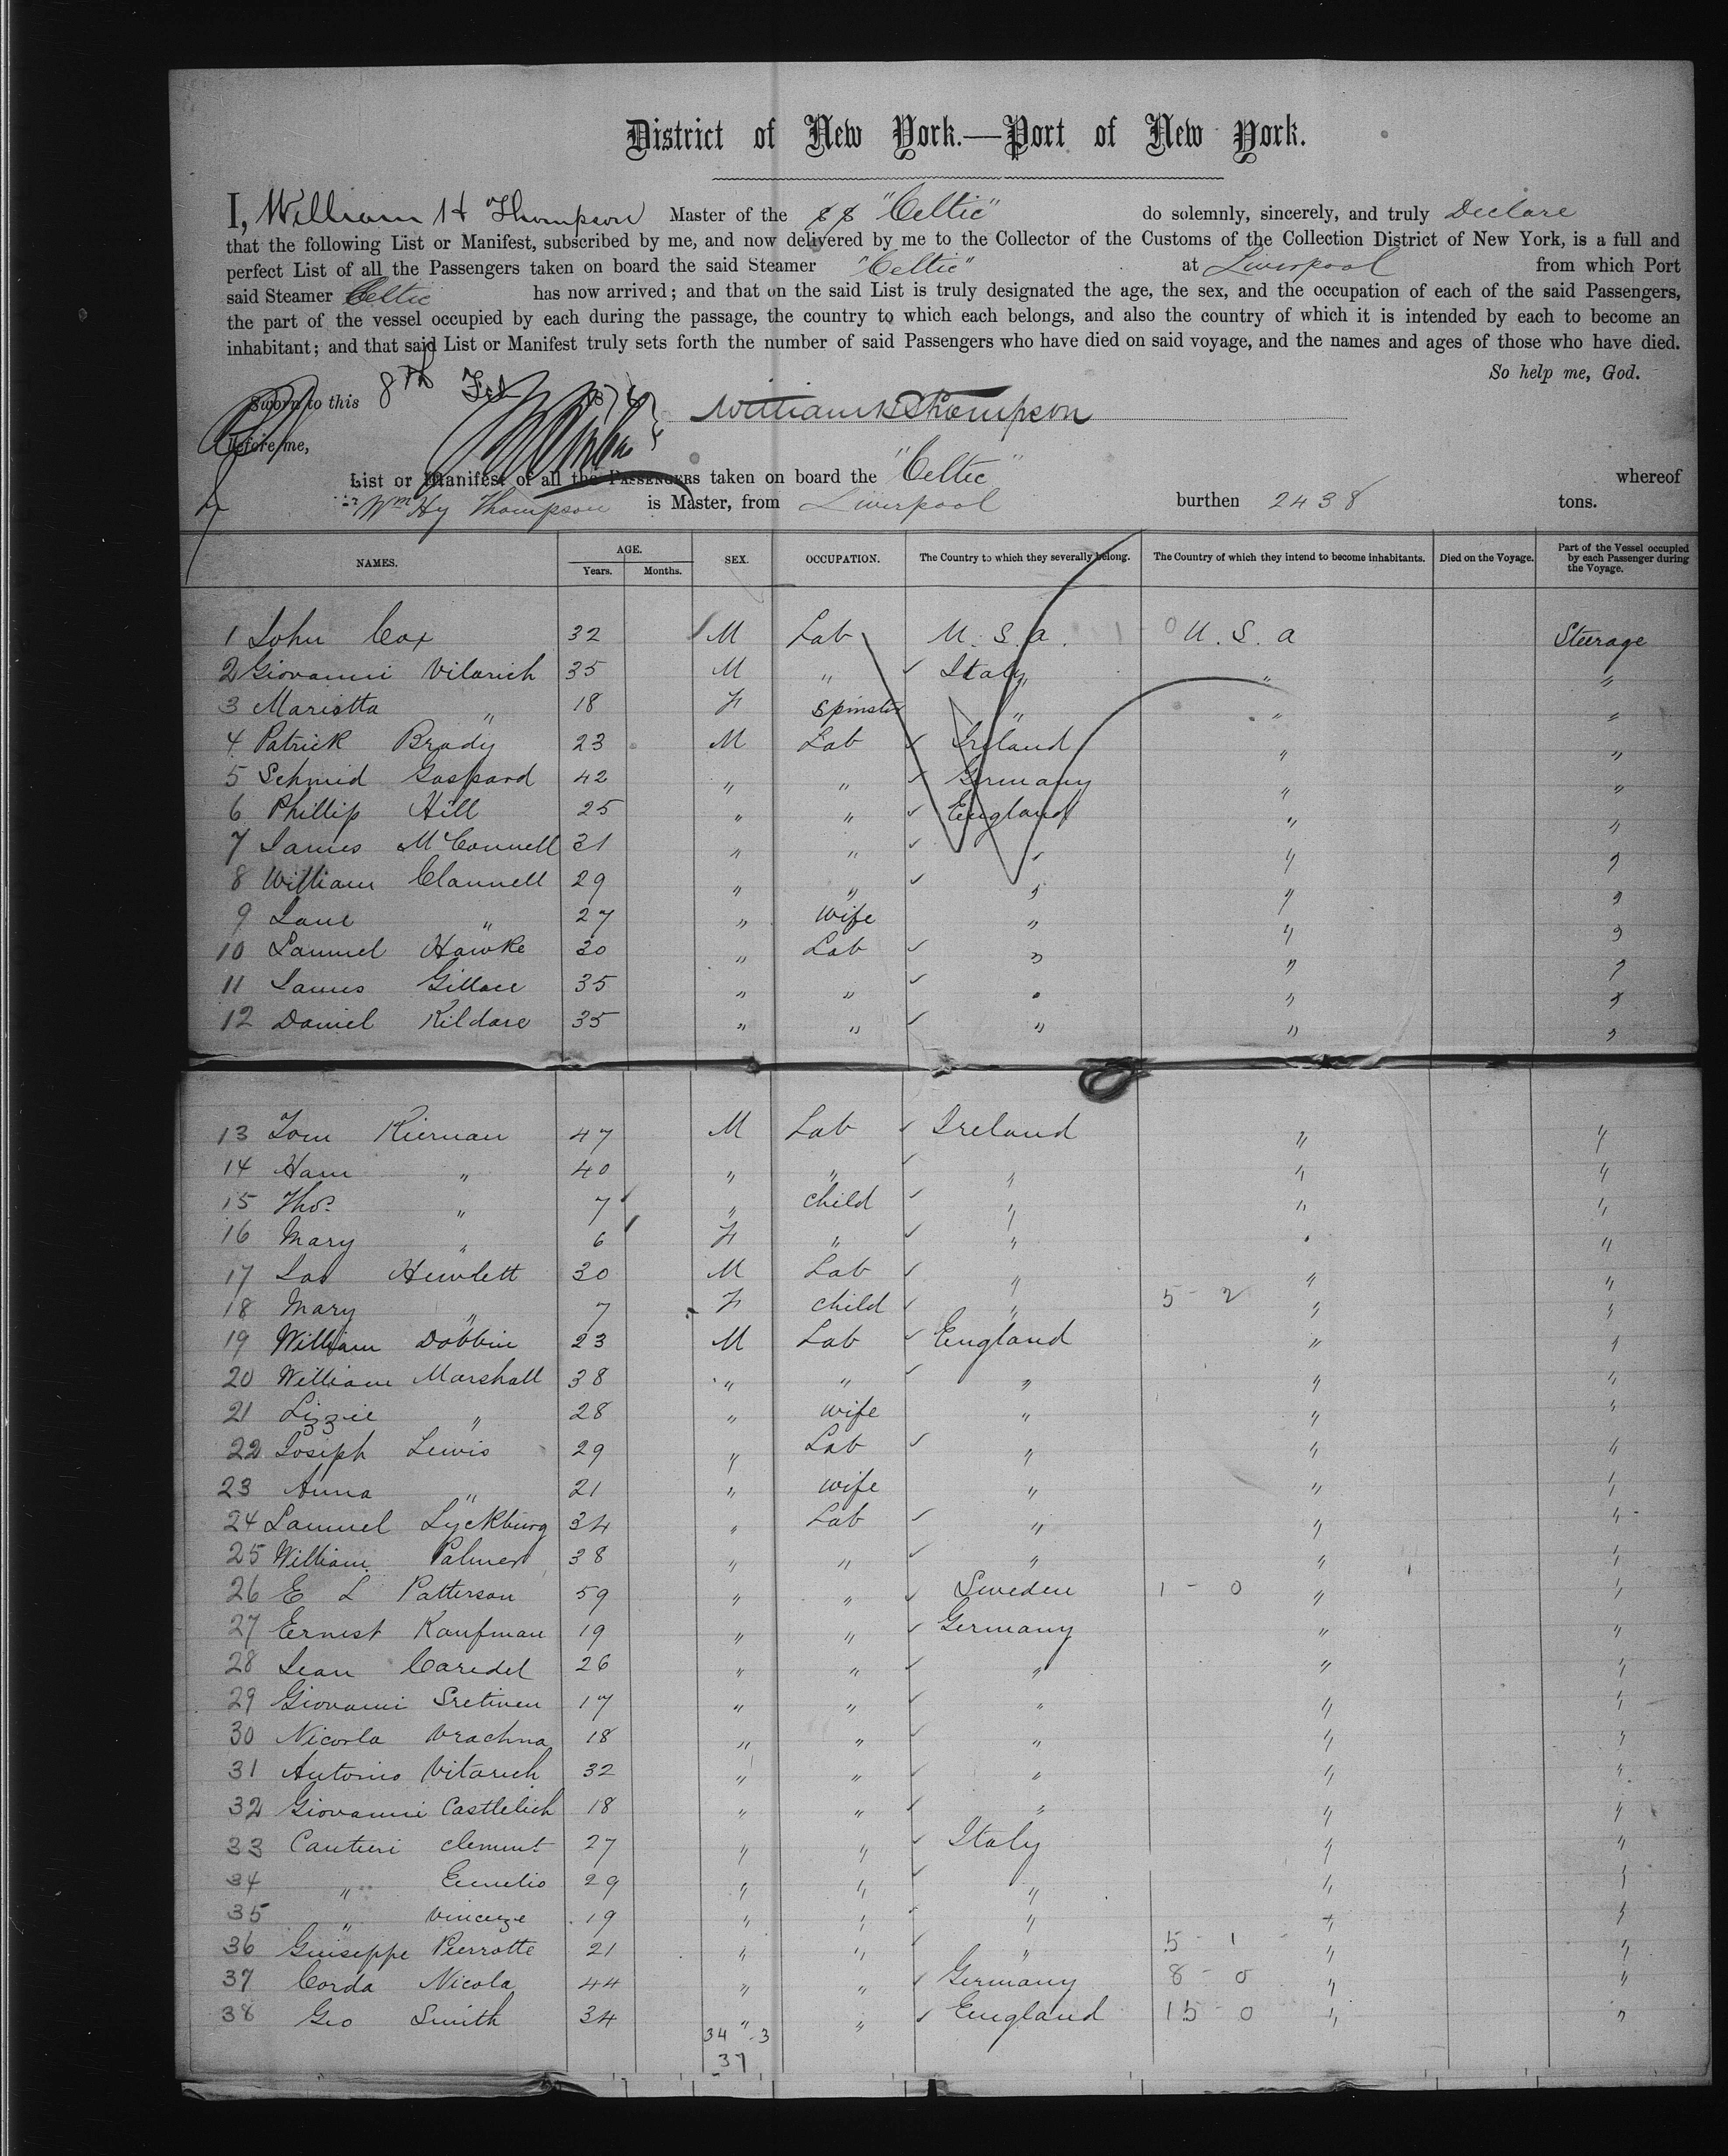 District of New York.—Port of New York.
I, William H Thompson Master of the SS "Celtic" do solemnly, sincerely, and truly Declare
that the following List or Manifest, subscribed by me, and now delivered by me to the Collector of the Customs of the Collection District of New York, is a full and
perfect List of all the Passengers taken on board the said Steamer "Celtic" at Liverpool from which Port
said Steamer Celtic has now arrived; and that on the said List is truly designated the age, the sex, and the occupation of each of the said Passengers,
the part of the vessel occupied by each during the passage, the country to which each belongs, and also the country of which it is intended by each to become an
inhabitant; and that said List or Manifest truly sets forth the number of said Passengers who have died on said voyage, and the names and ages of those who have died.
So help me, God.
Sworn to this 8th Feb
William H Thompson
Before me,
List or Manifest of all the Passengers taken on board the "Celtic" whereof
Wm Hy Thompson is Master, from Liverpool burthen 2438 tons.
NAMES. AGE. Years. Months. SEX. OCCUPATION. The Country to which they severally belong. The Country of which they intend to become inhabitants. Died on the Voyage. Part of the Vessel occupied by each Passenger during the Voyage.
1 John Cox 32 M Lab U.S.a. U.S.a Steerage
2 Giovanni Vilarich 35 M " Italy " "
3 Mariotta " 18 F Spinster " " "
4 Patrick Brady 23 M Lab Ireland " "
5 Schmid Gaspard 42 " " Germany " "
6 Phillip Hill 25 " " England " "
7 James McConnell 31 " " " " "
8 William Clannell 29 " " " " "
9 Jane " 27 " Wife " " "
10 Samuel Hawke 30 " Lab " " "
11 James 35 " " " " "
12 Daniel Kildare 35 " " " " "
13 Tom Kiernan 47 M Lab Ireland " "
14 Ham " 40 " " " " "
15 Thos. " 7 " child " " "
16 Mary " 6 F " " " "
17 Jas Hewlett 30 M Lab " " "
18 Mary " 7 F child " 5 - 2 " "
19 William Dobbin 23 M Lab England " "
20 William Marshall 38 " " " " "
21 Lizzie " 28 " wife " " "
22 Joseph Lewis 29 " Lab " " "
23 Anna " 21 " wife " " "
24 Samuel Lyckburg 34 " Lab " " "
25 William Palmer 38 " " " " "
26 E L Patterson 59 " " Sweden 1 - 0 " "
27 Ernest Kaufman 19 " " Germany " "
28 Jean Caredel 26 " " " " "
29 Giovanni Sretinen 17 " " " " "
30 Nicorla Vrachna 18 " " " " "
31 Antonio Vitarich 32 " " " " "
32 Giovanni Castlelich 18 " " " " "
33 Cantieri Clement 27 " " Italy " "
34 " Emelio 29 " " " " "
35 " Vinceze 19 " " " " "
36 Guiseppe Pierrotte 21 " " " 5 - 1 " "
37 Corda Nicola 44 " " Germany 8 - 0 " "
38 Geo Smith 34 " " England 15 - 0 " "
34 - 3
37